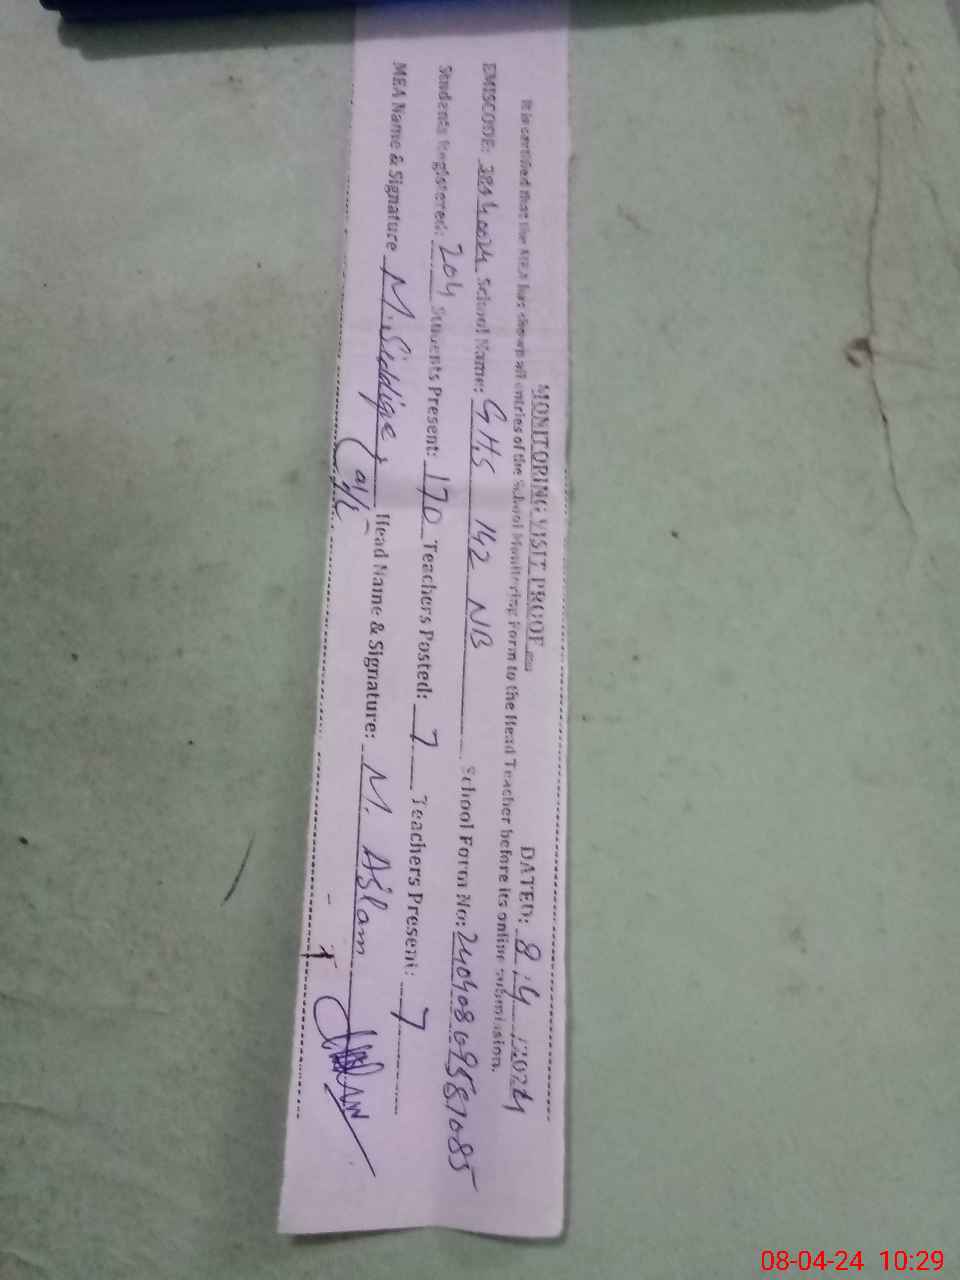 MONITORING VISIT PROOF DATED: 8/4/2024
It is certified that the MEA has shown all entries of the School Monitoring Form to the Head Teacher before its online submission.
EMISCODE: School Name: GHS 142 NB School Form No:
Students Registered: 204 Students Present: 170 Teachers Posted: 7 Teachers Present: 7
MEA Name & Signature M. Siddique, Head Name & Signature: M. Aslam
08-04-24 10:29